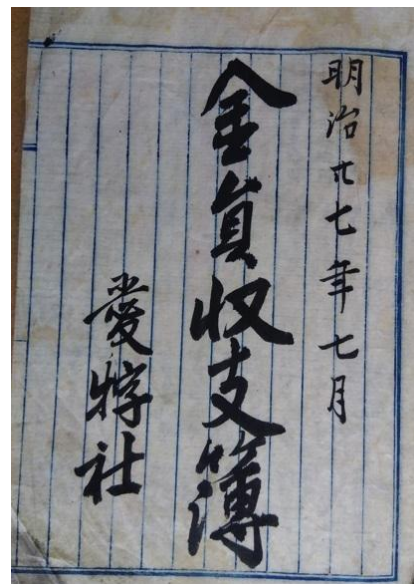 明治廿七年七月
金員収支簿
愛牸社